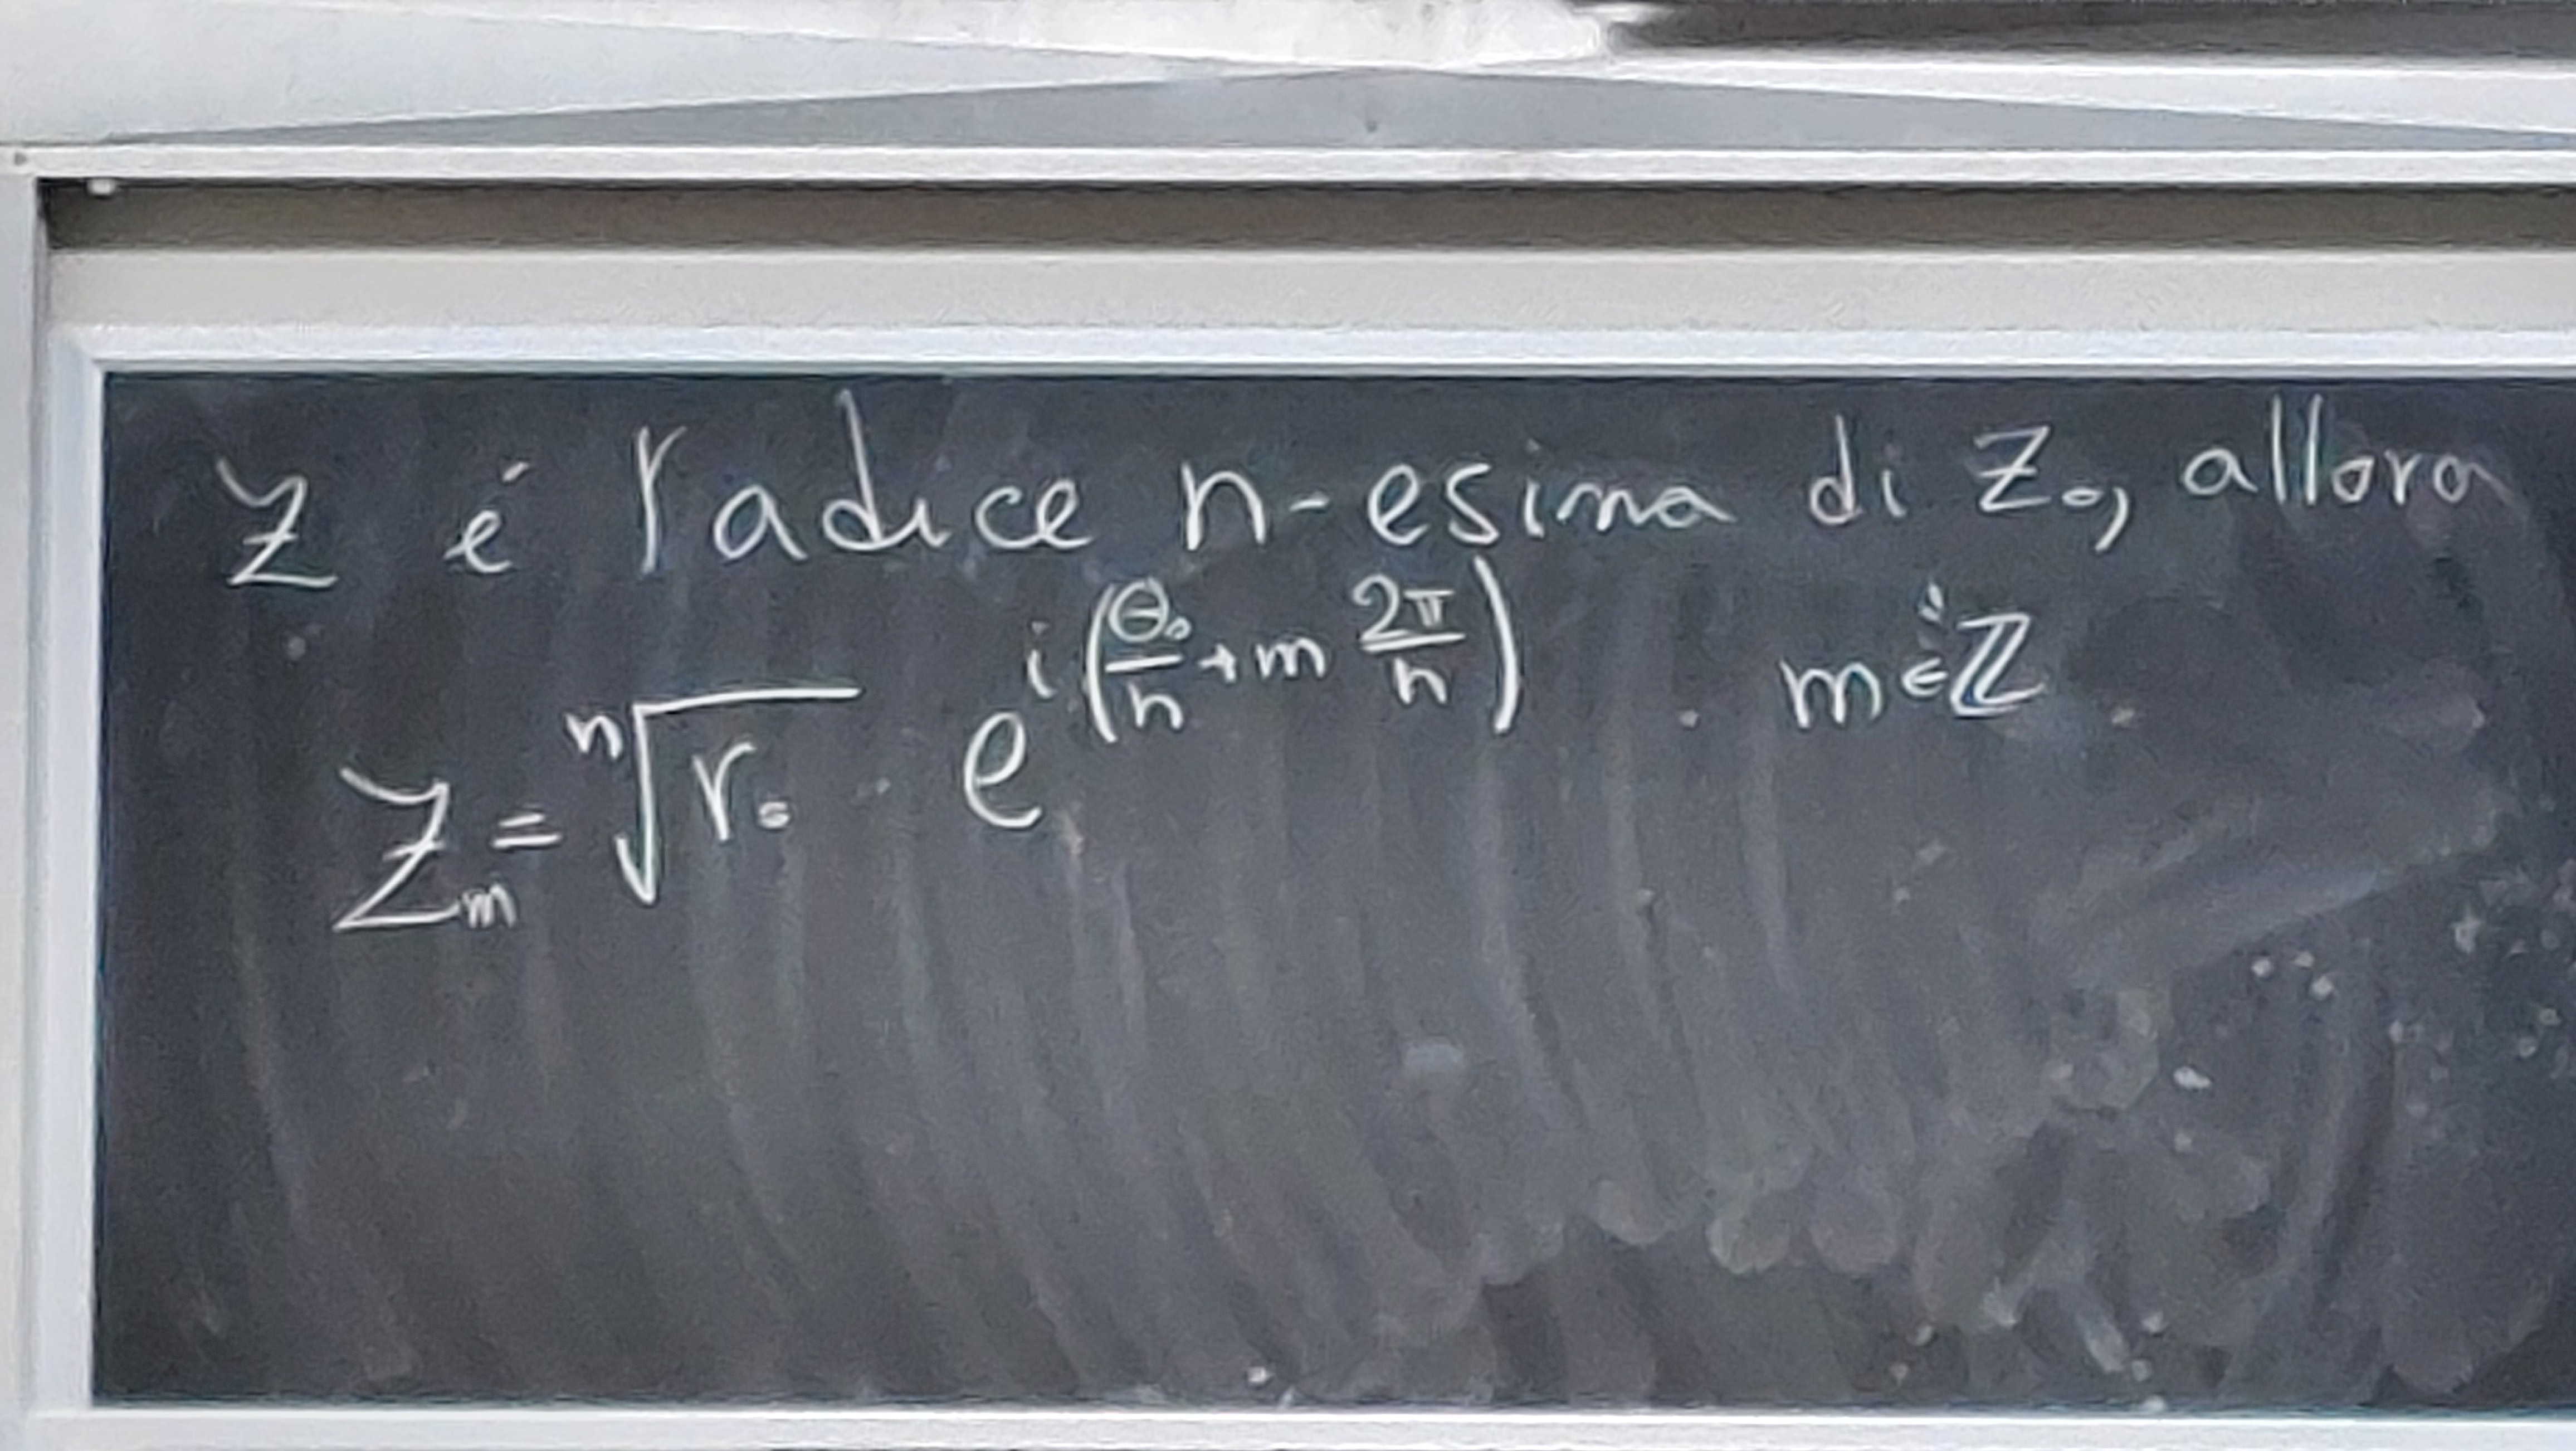 z é radice n-esima di z₀, allora
z_m = ⁿ√r₀ · e^{i(θ₀/n + m 2π/n)} m ∈ ℤ